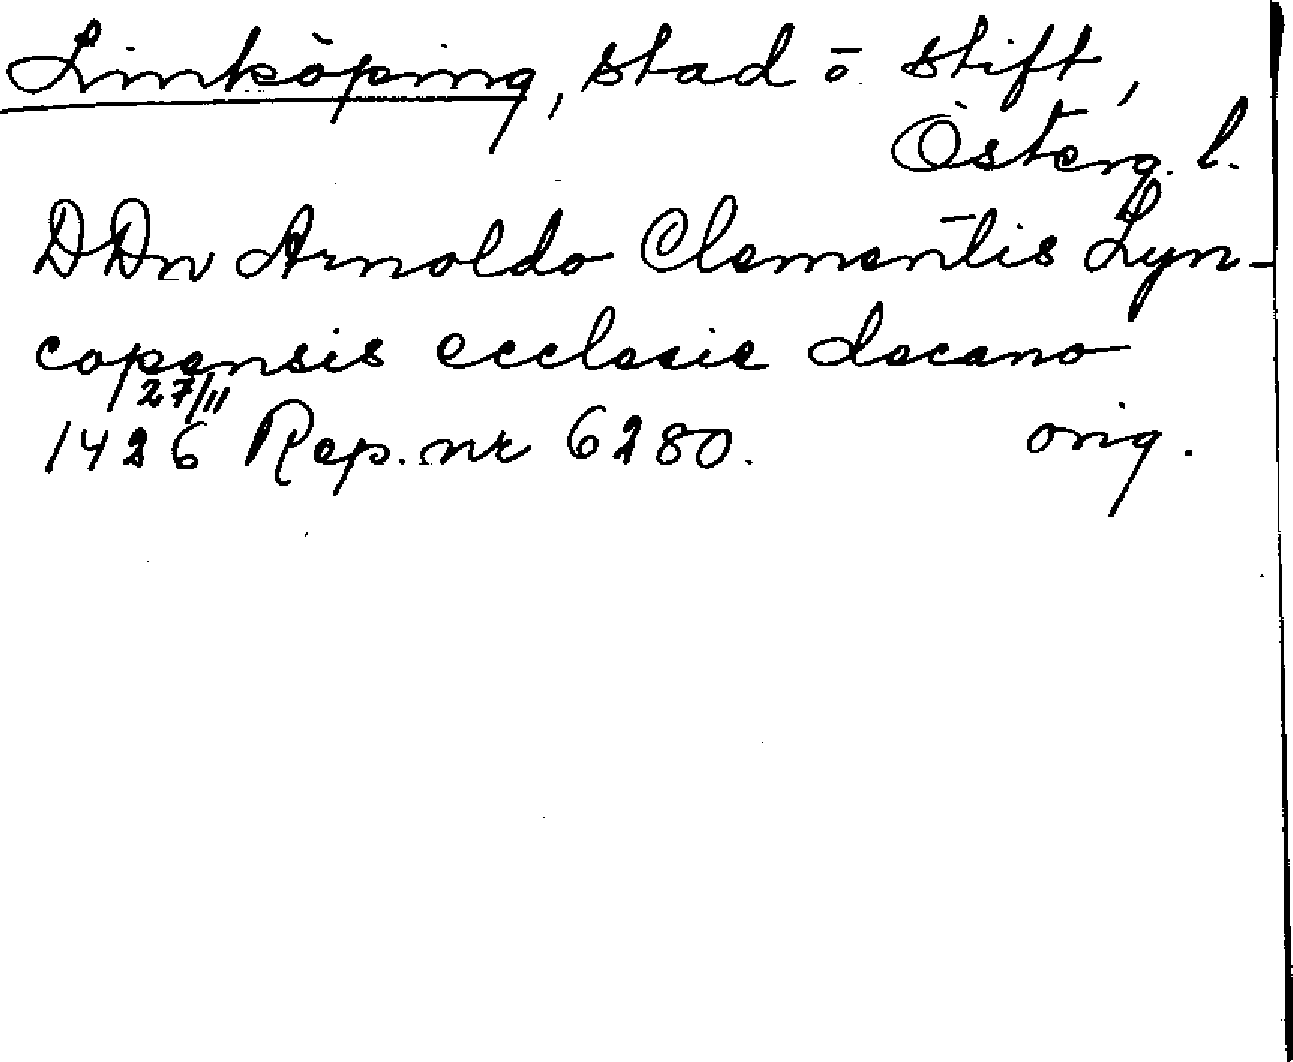 Linköping, stad ō stift,
Österg. l.
DDn Arnoldo Clementis Lyn-
copensis ecclesie decano
27/11
1426 Rep. nr 6280. orig.